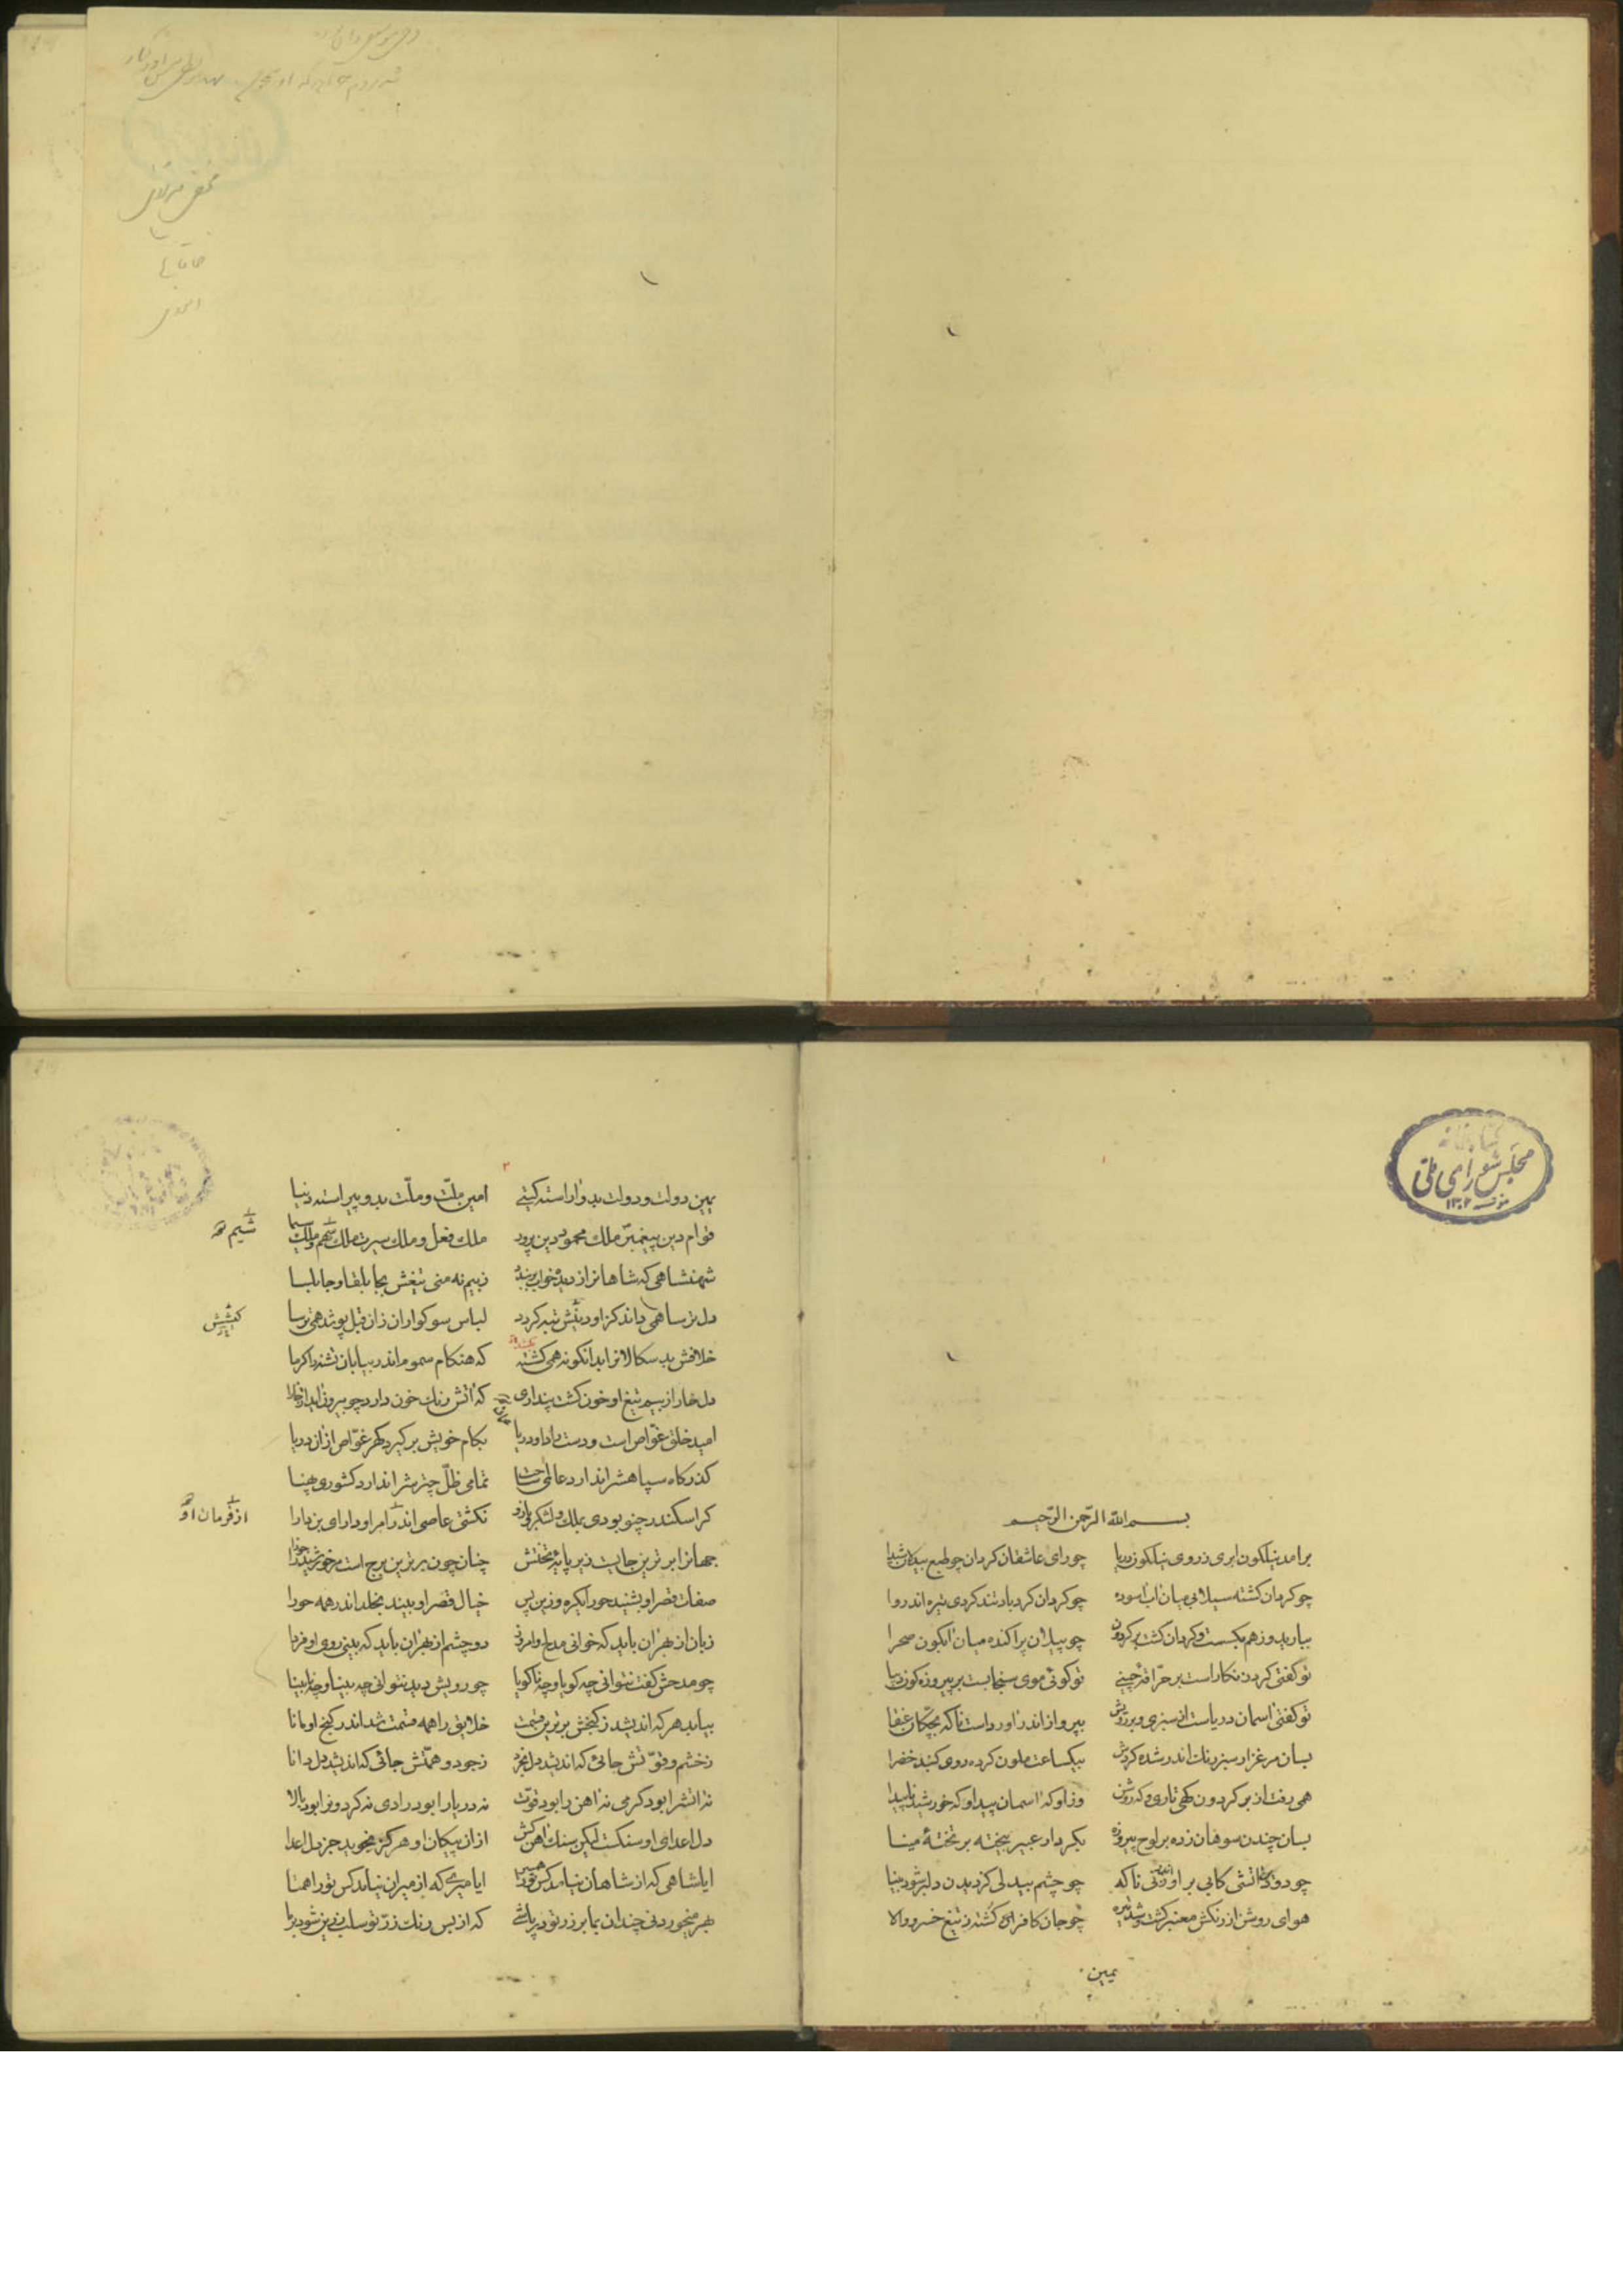 کتابخانه
مجلس شورای ملی
۱۳۰۲
بسم الله الرّحمن الرّحیم
برامد نیلکون ابری ز روی نیلکون دریا چو رای عاشقان کردان چو طبع بیدلان شیدا
چو کردان کشته سیلابی میان اب اسوده چو کردان کردباد تند کردی تیره اندر وا
ببارید و ز هم بکسست و کردان کشت بر کردون چو پیلان پراکنده میان ابکون صحرا
تو کفتی کرد زنکار است بر مرآة چینی تو کوئی موی سنجابست بر پیروزه کون دیبا
تو کفتی اسمان دریاست از سبزی و بر رویش بپرواز اندر اورداست ناکه بچکان عنقا
بسان مرغزار سبز رنك اندر شده کردش بیکساعت ملون کرده روی کنبد خضرا
همی رفت از بر کردون کهی تاری و که روشن وز او که اسمان پیدا و که خورشید ناپیدا
بسان چندن سوهان زده بر لوح پیروزه بکردار عبیر بیخته بر تختهٔ مینا
چو دودین اتشی کابی بر او زنی ناکه چو چشم بیدلی کز دیدن دلبر شود بینا
هوای روشن از رنکش مغبر کشت و شد تیره چو جان کافر کشته ز تیغ خسرو والا
یمین
۲
یمین دولت و دولت بدو اراسته کیتی امین ملّت و ملّت بدو پیراسته دنیا
قوام دین پیغمبر ملك محمود دین پرور ملك فعل و ملك سیرت ملك سهم و ملك سیما
شیم
شهنشاهی که شاهانرا ز دیده خواب برباید ز بیم نه منی تیغش بجابلقا و جابلسا
دل ترسا همی داند کز او دینش تبه کردد لباس سوکواران زان قبل پوشد همی ترسا
کیشش
خلافش بد سکالانرا بدانکونه همی کشته که هنکام سموم اندر بیابان تشنه را کرما
دل خارا ز بیم تیغ او خون کشت پنداری که اتش رنك خون دارد چو بیرون اید از خارا
امید خلق غوّاص است و دست راد او دریا بکام خویش برکیرد کهر غوّاص از ان دریا
کذرکاه سپاهشرا ندارد عالمی ساحت تمامی ظلّ چترشرا ندارد کشوری پهنا
کر اسکندر چنو بودی بملك و لشکر و بازو نکشتی عاصی اندر امر او دارای بن دارا
از فرمان او
جهانرا برترین جایست زیر پایه تختش چنان چون برترین برج است مر خورشید را جوزا
صفات قصر او بشنید حورا یکره و زین پس خیال قصر او بیند بخلد اندر همه حورا
زبان از بهر ان باید که خوانی مدح او امروز دو چشم از بهر ان باید که بینی روی او فردا
چو مدحش کفت نتوانی چه کویا و چه ناکویا چو رویش دید نتوانی چه بینا و چه نابینا
بیابد هر که اندیشد ز کنجش برترین قسمت خلایق را همه قسمت شد اندر کنج او مانا
ز خشم و قوّتش جائی که اندیشد دل بخرد ز جود و همّتش جائی که اندیشد دل دانا
نه اتشرا بود کرمی نه اهن را بود قوّت نه دریا را بود رادی نه کردونرا بود بالا
دل اعدای او سنکست لیکن سنك اهن کش از ان پیکان او هرکز نجوید جز دل اعدا
ایا شاهی که از شاهان نیامد کس تو را همسر ایا میری که از میران نباشد کس تو را همتا
بهر میخوردنی چندان بما بر زر تو در پاشی که از بس رنك زرّ تو سلب زرین شود بر ما